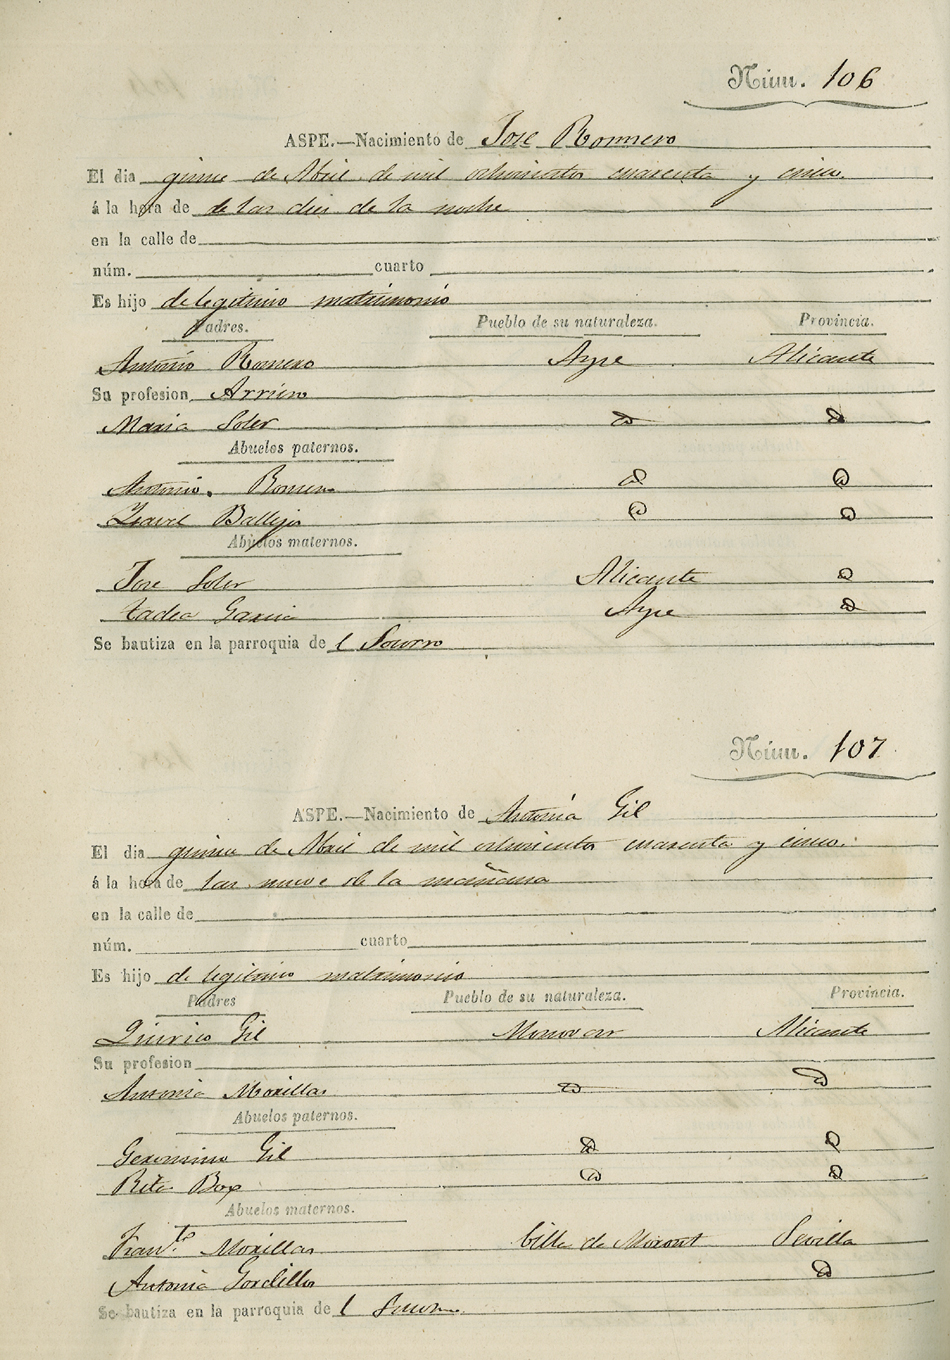 Núm. 106
ASPE.—Nacimiento de José Romero
El dia quince de Abril de mil ochocientos cuarenta y cinco.
á la hora de de las dies de la noche
en la calle de
núm. cuarto
Es hijo de legitimo matrimonio
Padres. Pueblo de su naturaleza. Provincia.
Antonio Romero Aspe Alicante
Su profesion Arriero
Maria Soler
Abuelos paternos.
Antonio Romero
Isavel Ballejos
Abuelos maternos.
Jose Soler Alicante
Tadea Garcia Aspe
Se bautiza en la parroquia de l Socorro
Núm. 107
ASPE.—Nacimiento de Antonia Gil
El dia quince de Abril de mil ochocientos cuarenta y cinco.
á la hora de las nueve de la mañana
en la calle de
núm. cuarto
Es hijo de legitimo matrimonio
Padres Pueblo de su naturaleza. Provincia.
Quirico Gil Monovar Alicante
Su profesion
Antonia Morillas
Abuelos paternos.
Geronimo Gil
Rita Box
Abuelos maternos.
Fran.to Morillas Villa de Moront Sevilla
Antonia Gordillo
Se bautiza en la parroquia de l Socorro